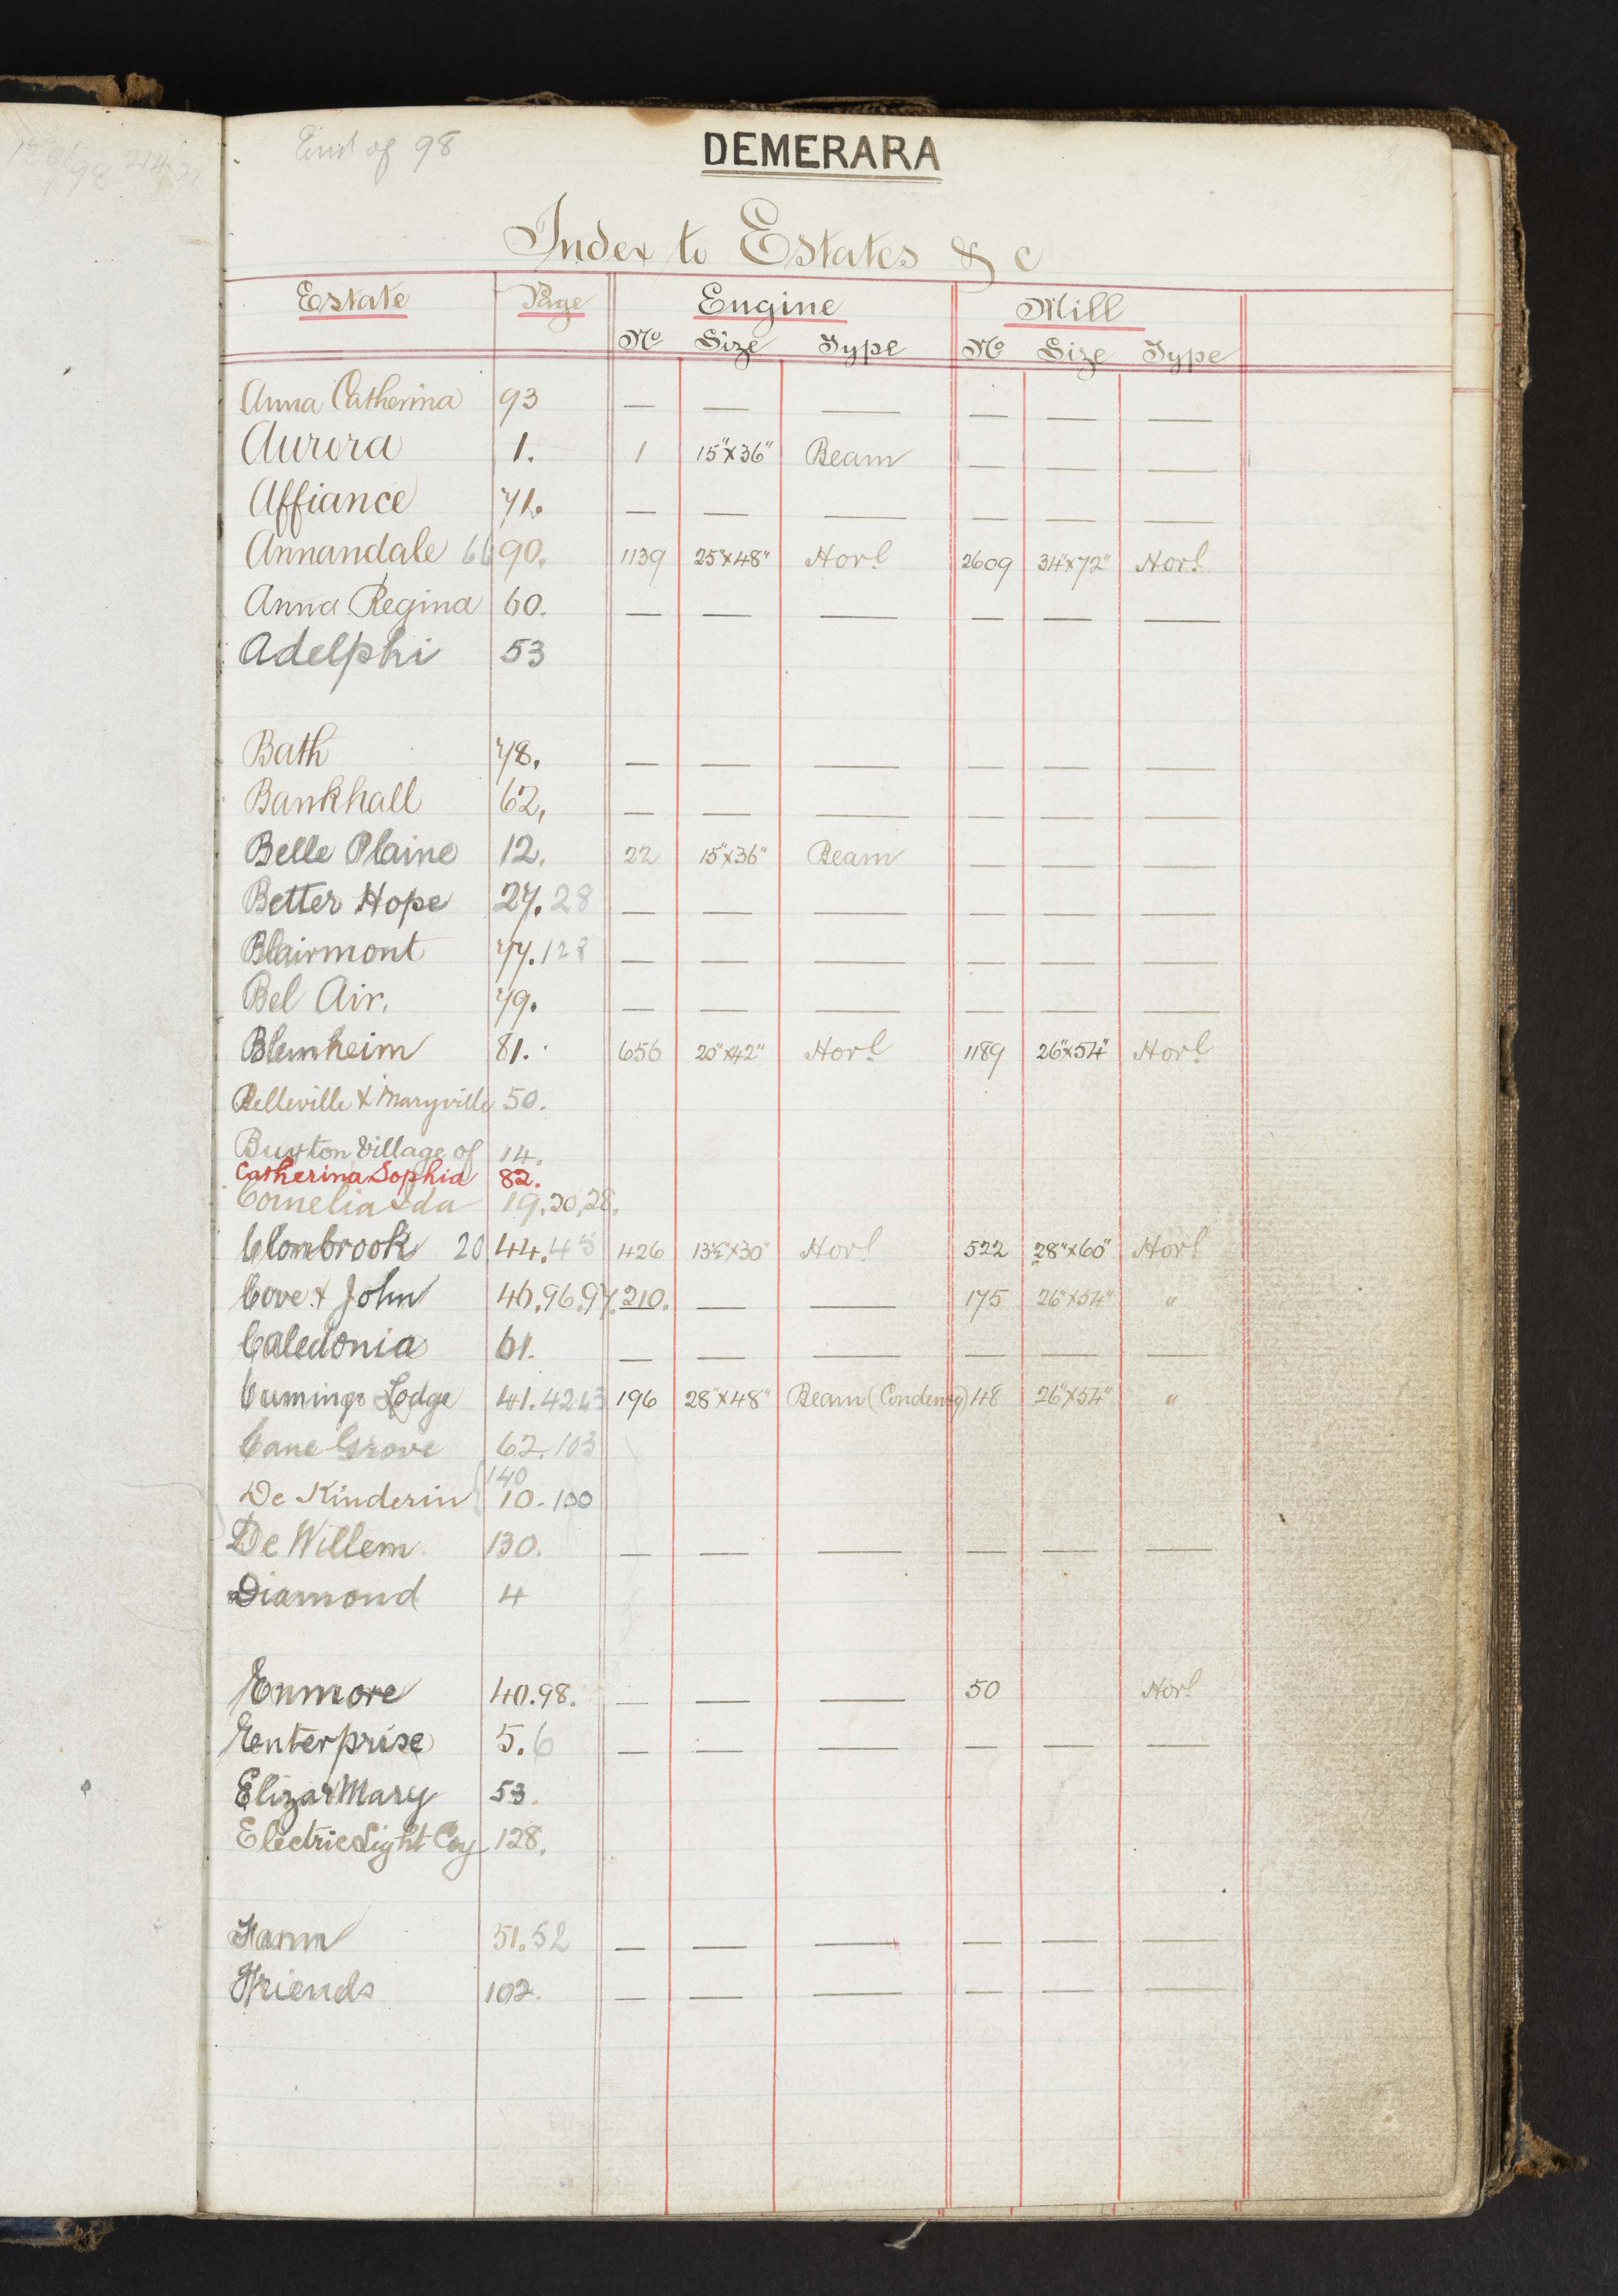 End of 98
DEMERARA
Index to Estates & c
Estate Page Engine Mill
No Size Type No Size Type
Anna Catherina 93 — — — — — —
Aurora 1. 1 15"x36" Beam — — —
Affiance 71. — — — — — —
Annandale 66 90. 1139 25"x48" Horl 2609 34"x72" Horl
Anna Regina 60. — — — — — —
Adelphi 53
Bath 78. — — — — — —
Bankhall 62, — — — — — —
Belle Plaine 12. 22 15"x36" Beam — — —
Better Hope 27. 28 — — — — — —
Blairmont 77. 128 — — — — — —
Bel Air. 79. — — — — — —
Blenheim 81. 656 20"x42" Horl 1189 26"x54" Horl
Belleville & Maryville 50.
Buxton Village of 14.
Catherina Sophia 82.
Cornelia Ida 19.20,28.
Clonbrook 20 44.45 426 13½"x30" Horl 522 28"x60" Horl
Cove & John 46.96.97. 210. — — 175 26"x54" "
Caledonia 61. — — — — — —
Cumings Lodge 41.42.43 196 28"x48" Beam (Condensg) 48 26"x54" "
Cane Grove 62. 103
140
De Kinderin 10. 100
De Willem 130. — — — — — —
Diamond 4
Enmore 40.98. — — — 50 Horl
Enterprise 5. 6 — — — — — —
Eliza & Mary 53.
Electric Light Coy 128.
Farm 51.52 — — — — — —
Friends 102. — — — — — —